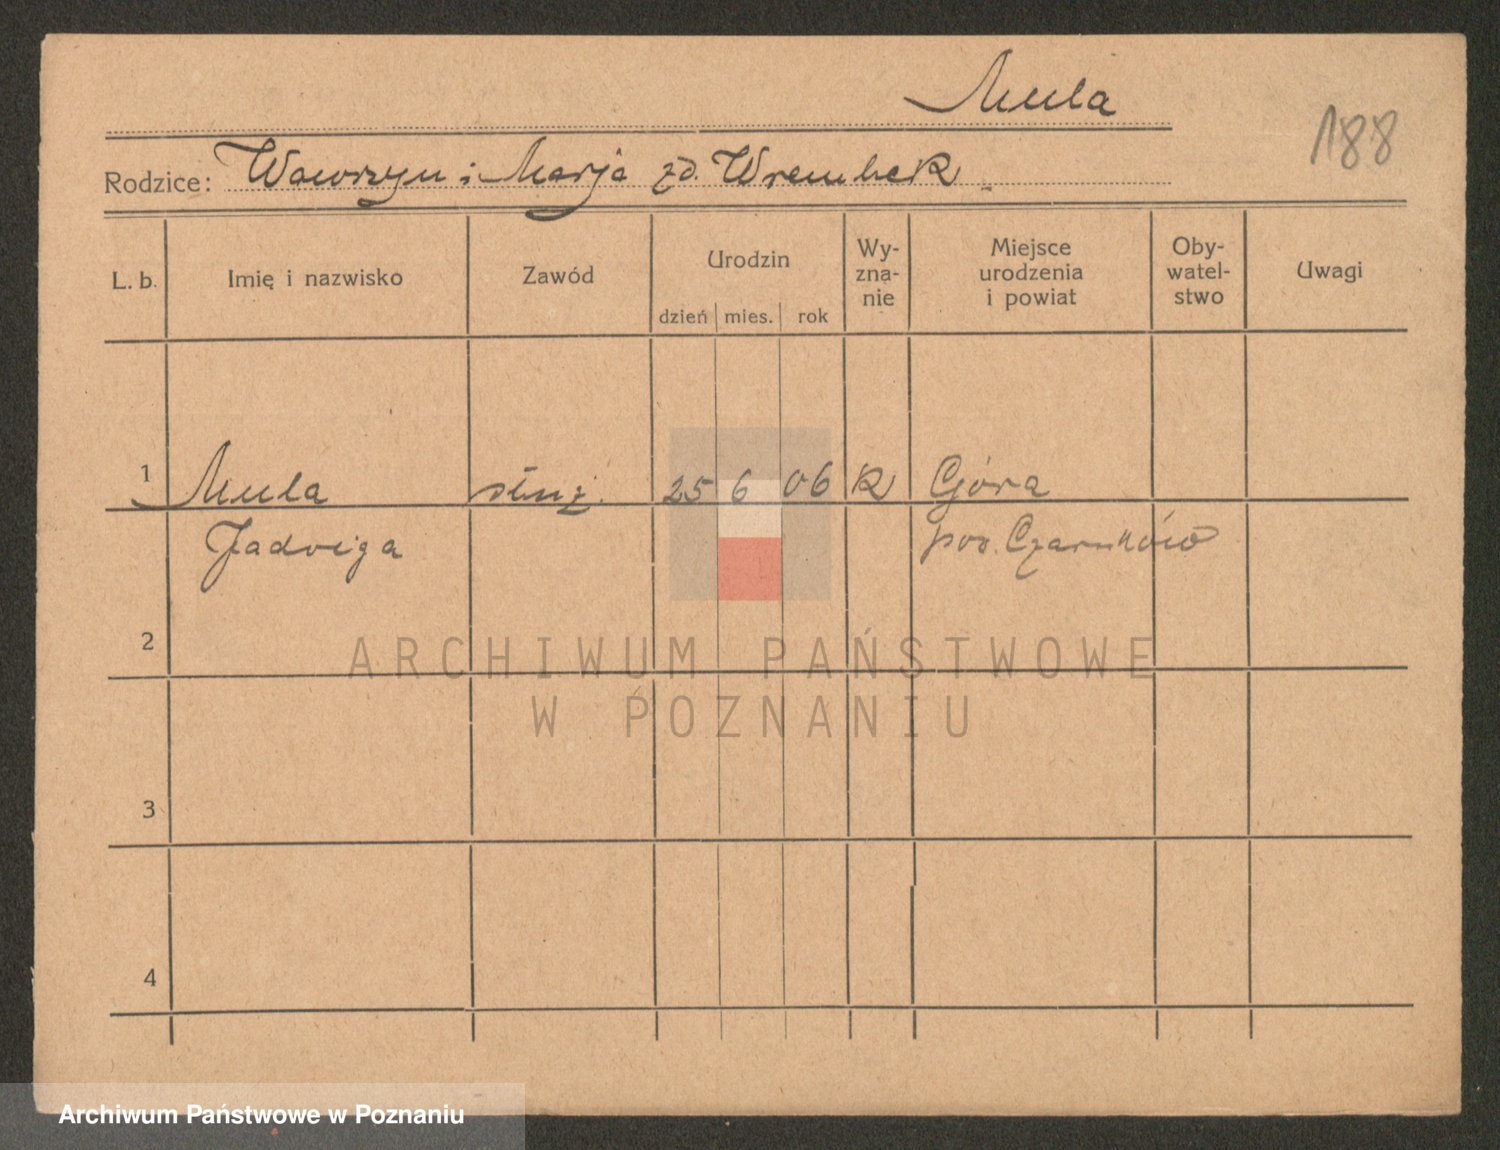 Mula
188
Rodzice: Wawrzyn i Marja zd. Wrembek
L. b.
Imię i nazwisko
Zawód
Urodzin
dzień mies. rok
Wy-
zna-
nie
Miejsce
urodzenia
i powiat
Oby-
watel-
stwo
Uwagi
1 Mula służ. 25 6 06 K Góra
Jadwiga pow. Czarnków
2
3
4
ARCHIWUM PAŃSTWOWE
W POZNANIU
Archiwum Państwowe w Poznaniu